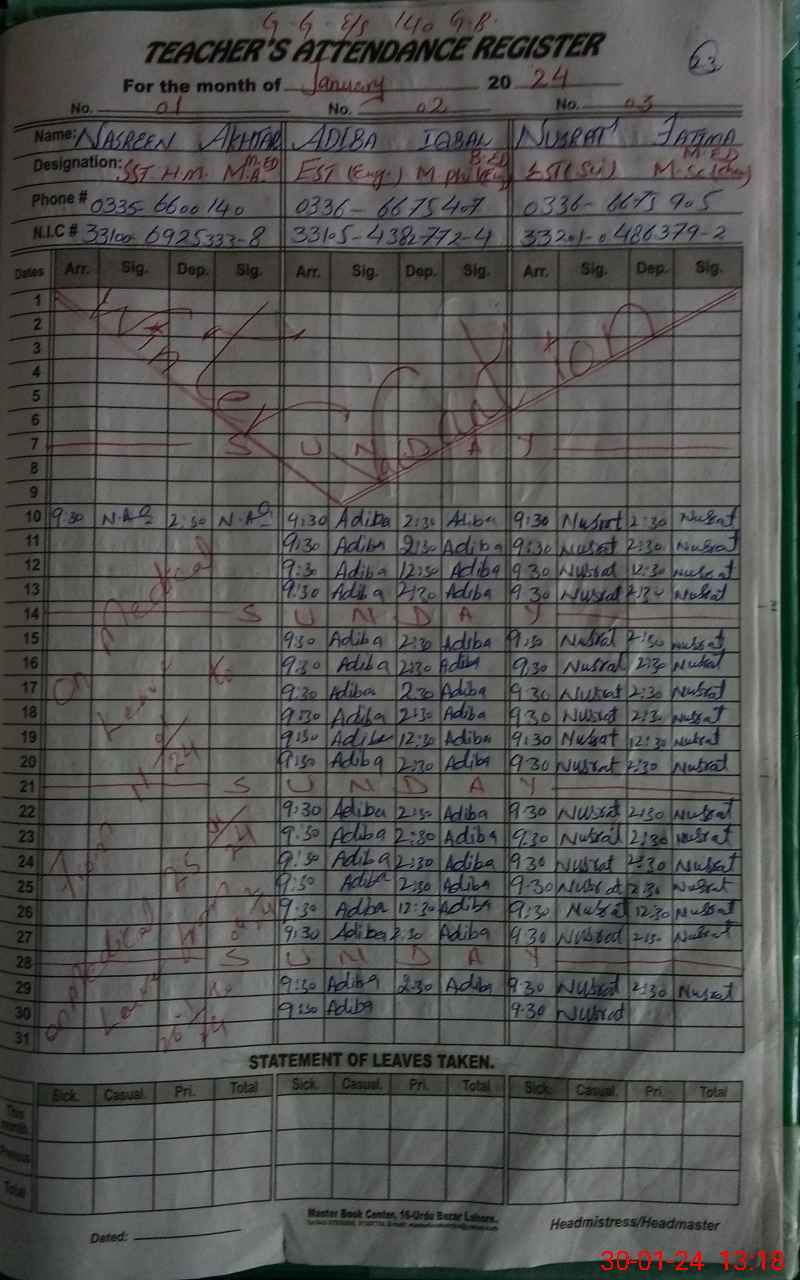 G. G. E/S 140 G.B.
23
TEACHER'S ATTENDANCE REGISTER
For the month of January 20 24
No. 01 No. 02 No. 03
Name: NASREEN AKHTAR ADIBA IQBAL NUSRAT FATIMA
Designation: SST H.M. M.A M.ED EST (Eng.) M.phil B.ED EST (Sci) M.Sc M.ED
Phone # 0335-6600140 0336-6675407 0336-6675905
N.I.C # 33100-6925333-8 33105-4382772-4 33201-0486379-2
Dates Arr. Sig. Dep. Sig. Arr. Sig. Dep. Sig. Arr. Sig. Dep. Sig.
1
2
3
4
5
6
Winter Vacation
7 S U N D A Y
8
9
10 9:30 N.A 2:30 N.A 9:30 Adiba 2:30 Adiba 9:30 Nusrat 2:30 Nusrat
11 9:30 Adiba 2:30 Adiba 9:30 Nusrat 2:30 Nusrat
12 9:30 Adiba 12:30 Adiba 9:30 Nusrat 12:30 Nusrat
13 9:30 Adiba 2:30 Adiba 9:30 Nusrat 2:30 Nusrat
14 S U N D A Y
15 9:30 Adiba 2:30 Adiba 9:30 Nusrat 2:30 Nusrat
16 9:30 Adiba 2:30 Adiba 9:30 Nusrat 2:30 Nusrat
17 9:30 Adiba 2:30 Adiba 9:30 Nusrat 2:30 Nusrat
18 9:30 Adiba 2:30 Adiba 9:30 Nusrat 2:30 Nusrat
19 9:30 Adiba 12:30 Adiba 9:30 Nusrat 12:30 Nusrat
20 9:30 Adiba 2:30 Adiba 9:30 Nusrat 2:30 Nusrat
On Medical Leave
21 S U N D A Y
22 9:30 Adiba 2:30 Adiba 9:30 Nusrat 2:30 Nusrat
23 9:30 Adiba 2:30 Adiba 9:30 Nusrat 2:30 Nusrat
24 9:30 Adiba 2:30 Adiba 9:30 Nusrat 2:30 Nusrat
25 9:30 Adiba 2:30 Adiba 9:30 Nusrat 2:30 Nusrat
26 9:30 Adiba 12:30 Adiba 9:30 Nusrat 12:30 Nusrat
27 9:30 Adiba 2:30 Adiba 9:30 Nusrat 2:30 Nusrat
28 S U N D A Y
29 9:30 Adiba 2:30 Adiba 9:30 Nusrat 2:30 Nusrat
30 9:30 Adiba 9:30 Nusrat
31
On Medical Leave
STATEMENT OF LEAVES TAKEN.
Sick. Casual. Pri. Total Sick. Casual. Pri. Total Sick. Casual. Pri. Total
This month.
Previous
Total
Master Book Center, 16-Urdu Bazar Lahore.
Dated: Headmistress/Headmaster
30-01-24 13:18